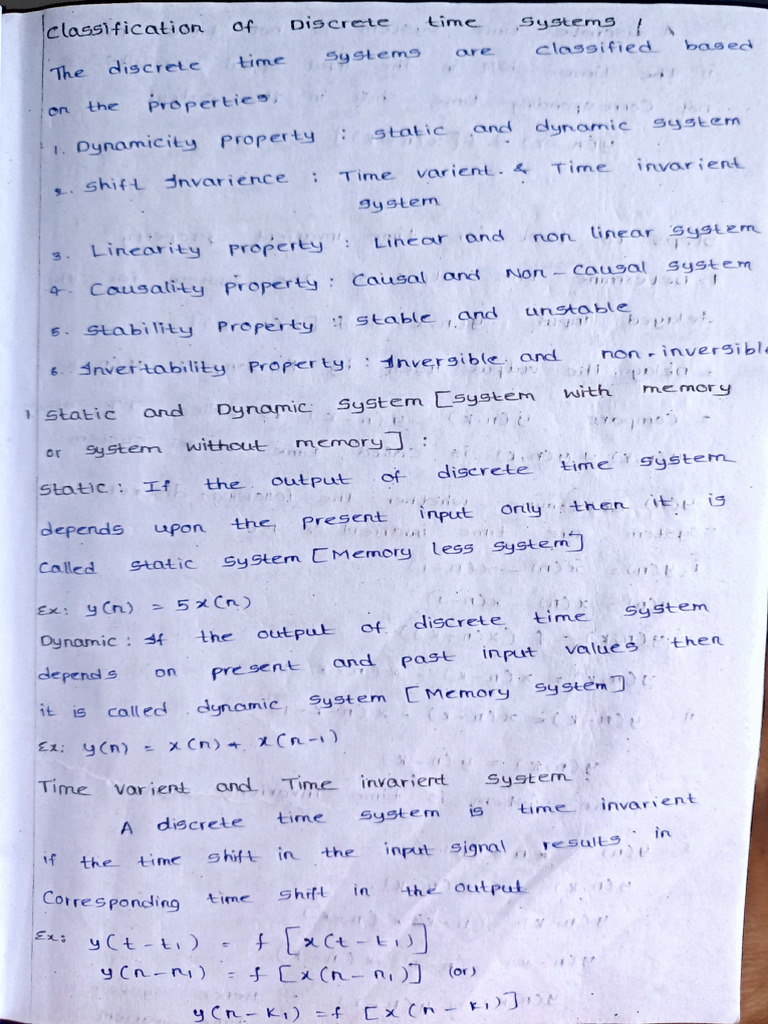 Classification of Discrete time systems :
The discrete time systems are classified based
on the properties,
1. Dynamicity property : static and dynamic system
2. shift Invarience : Time varient & Time invarient
system
3. Linearity property : Linear and non linear system
4. Causality property : Causal and Non-causal system
5. Stability Property : stable and unstable
6. Invertability Property : Inversible and non-inversible
1 static and Dynamic System [system with memory
or system without memory] :
Static : If the output of discrete time system
depends upon the present input only then it is
Called static system [Memory less system]
Ex: y(n) = 5x(n)
Dynamic : If the output of discrete time system
depends on present and past input values then
it is called dynamic system [Memory system]
Ex: y(n) = x(n) + x(n-1)
Time varient and Time invarient system :
A discrete time system is time invarient
if the time shift in the input signal results in
Corresponding time shift in the output
Ex: y(t-t₁) = f [x(t-t₁)]
y(n-n₁) = f [x(n-n₁)] (or)
y(n-k₁) = f [x(n-k₁)]